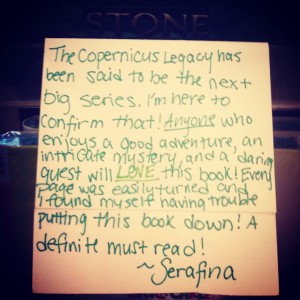 STONE
The Copernicus Legacy has
been said to be the next
big series. I'm here to
confirm that! Anyone who
enjoys a good adventure, an
intricate mystery, and a daring
quest will LOVE this book! Every
page was easily turned and
I found myself having trouble
putting this book down! A
definite must read!
~Serafina